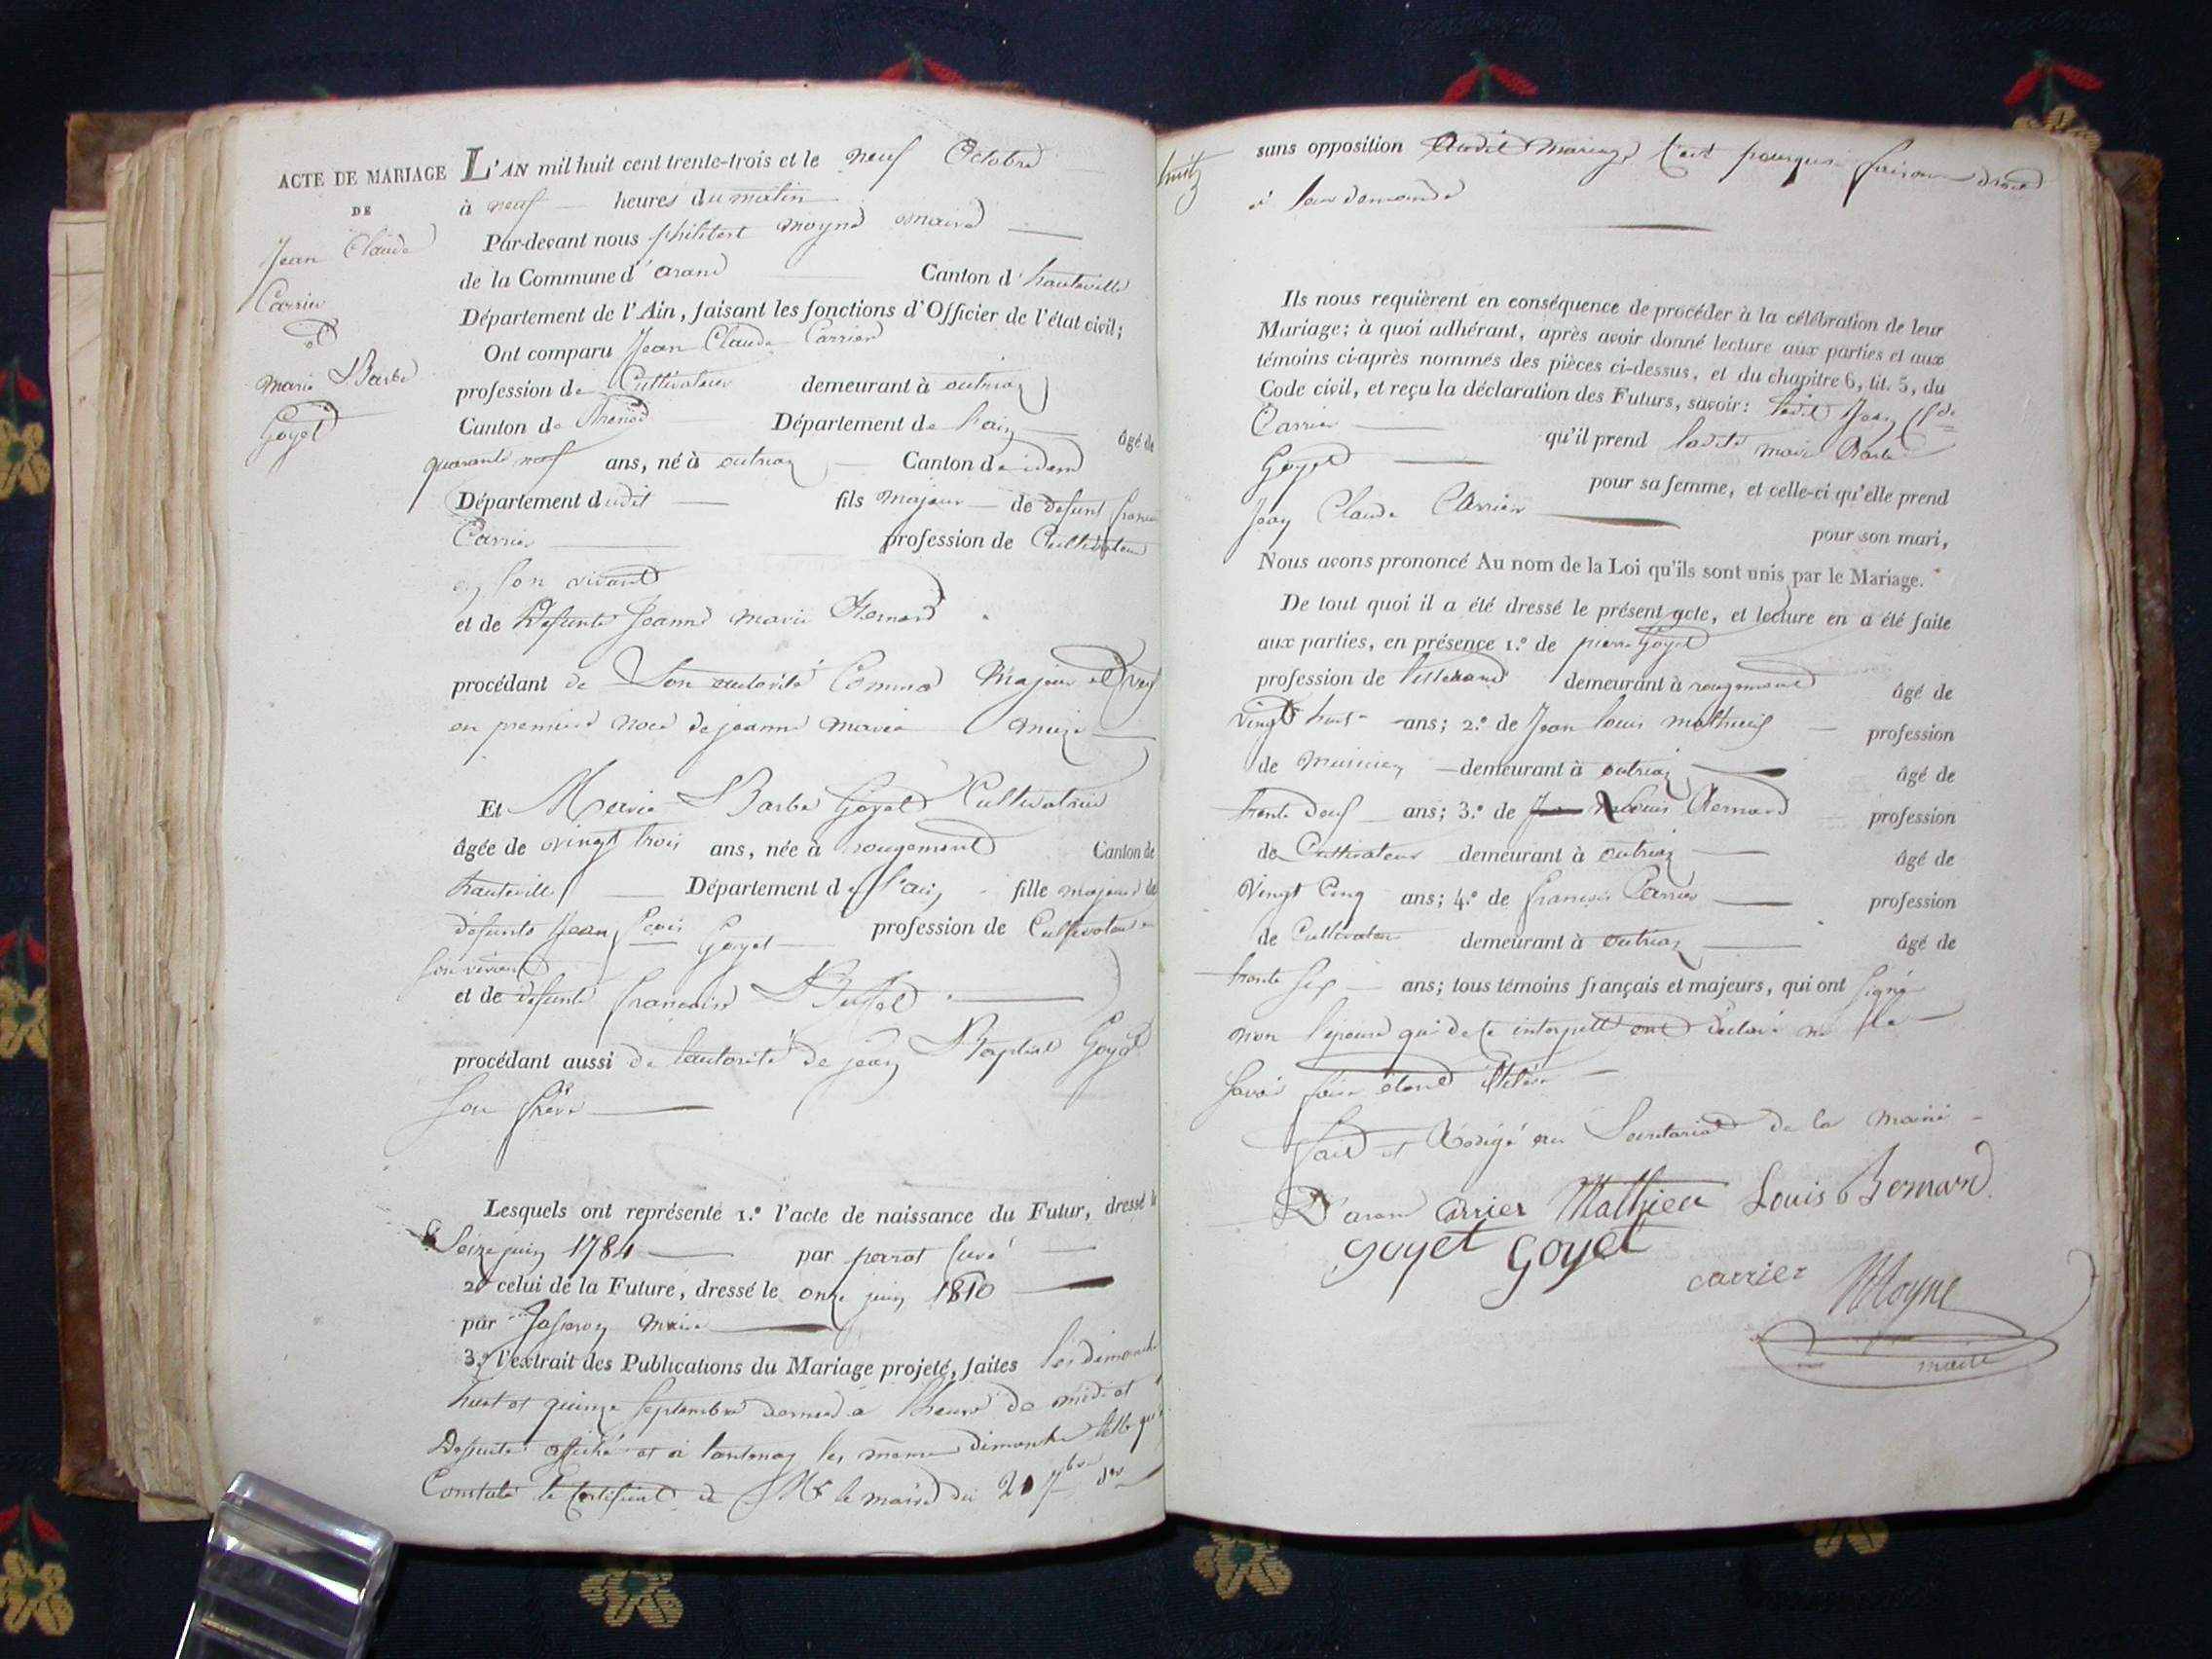 ACTE DE MARIAGE
DE
Jean Claude
Carrier
et
Marie Barbe
Goyet
L'AN mil huit cent trente-trois et le neuf Octobre
à neuf heures du matin
Par-devant nous philibert moyne maire
de la Commune d'arand Canton d'hauteville
Département de l'Ain, faisant les fonctions d'Officier de l'état civil;
Ont comparu Jean Claude Carrier
profession de Cultivateur demeurant à outriaz
Canton de Brenod Département de l'ain âgé de
quarante neuf ans, né à outriaz Canton de idem
Département dudit fils majeur de defunt
Carrier profession de Cultivateur
en son vivant
et de Defunte Jeanne Marie Bernard
procédant de Son autorité Comme Majeur et veuf
en premiere noce de jeanne marie
Et Marie Barbe Goyet Cultivatrice
âgée de vingt trois ans, née à rougemont Canton de
hauteville Département de l'ain fille majeure de
defunts Jean fcois Goyet profession de Cultivateur en
son vivant
et de defunte francoise
procédant aussi de l'autorité de jean Baptiste Goyet
son frère
Lesquels ont représenté 1.º l'acte de naissance du Futur, dressé le
Seize juin 1784 par perrot Curé
2º celui de la Future, dressé le onze juin 1810
par maire
3.º l'extrait des Publications du Mariage projeté, faites les dimanche
huit et quinze septembre dernier à l'heure de midi et
Desuite affiché et à lantenay les même dimanche
Constate le certificat de Mr le maire du 21 7bre der
sans opposition audit mariage C'est pourquoi faisant droit
à leur demande
Ils nous requièrent en conséquence de procéder à la célébration de leur
Mariage; à quoi adhérant, après avoir donné lecture aux parties et aux
témoins ci-après nommés des pièces ci-dessus, et du chapitre 6, tit. 5, du
Code civil, et reçu la déclaration des Futurs, savoir: ledit Jean Cde
Carrier qu'il prend ladite marie Barbe
Goyet pour sa femme, et celle-ci qu'elle prend
Jean Claude Carrier pour son mari,
Nous avons prononcé Au nom de la Loi qu'ils sont unis par le Mariage.
De tout quoi il a été dressé le présent acte, et lecture en a été faite
aux parties, en présence 1.º de pierre Goyet
profession de tisserand demeurant à rougemont âgé de
vingt huit ans; 2.º de Jean louis mathieu profession
de demeurant à outriaz âgé de
trente neuf ans; 3.º de Louis Bernard profession
de Cultivateur demeurant à outriaz âgé de
Vingt Cinq ans; 4.º de francois Carrier profession
de Cultivateur demeurant à outriaz âgé de
trente six ans; tous témoins français et majeurs, qui ont signé
non l'épouse qui de ce ont déclaré ne le
savoir faire
fait et Rédigé au Secretariat de la mairie
D'aran carrier Mathieu Louis Bernard
goyet Goyet
carrier Moyne
maire